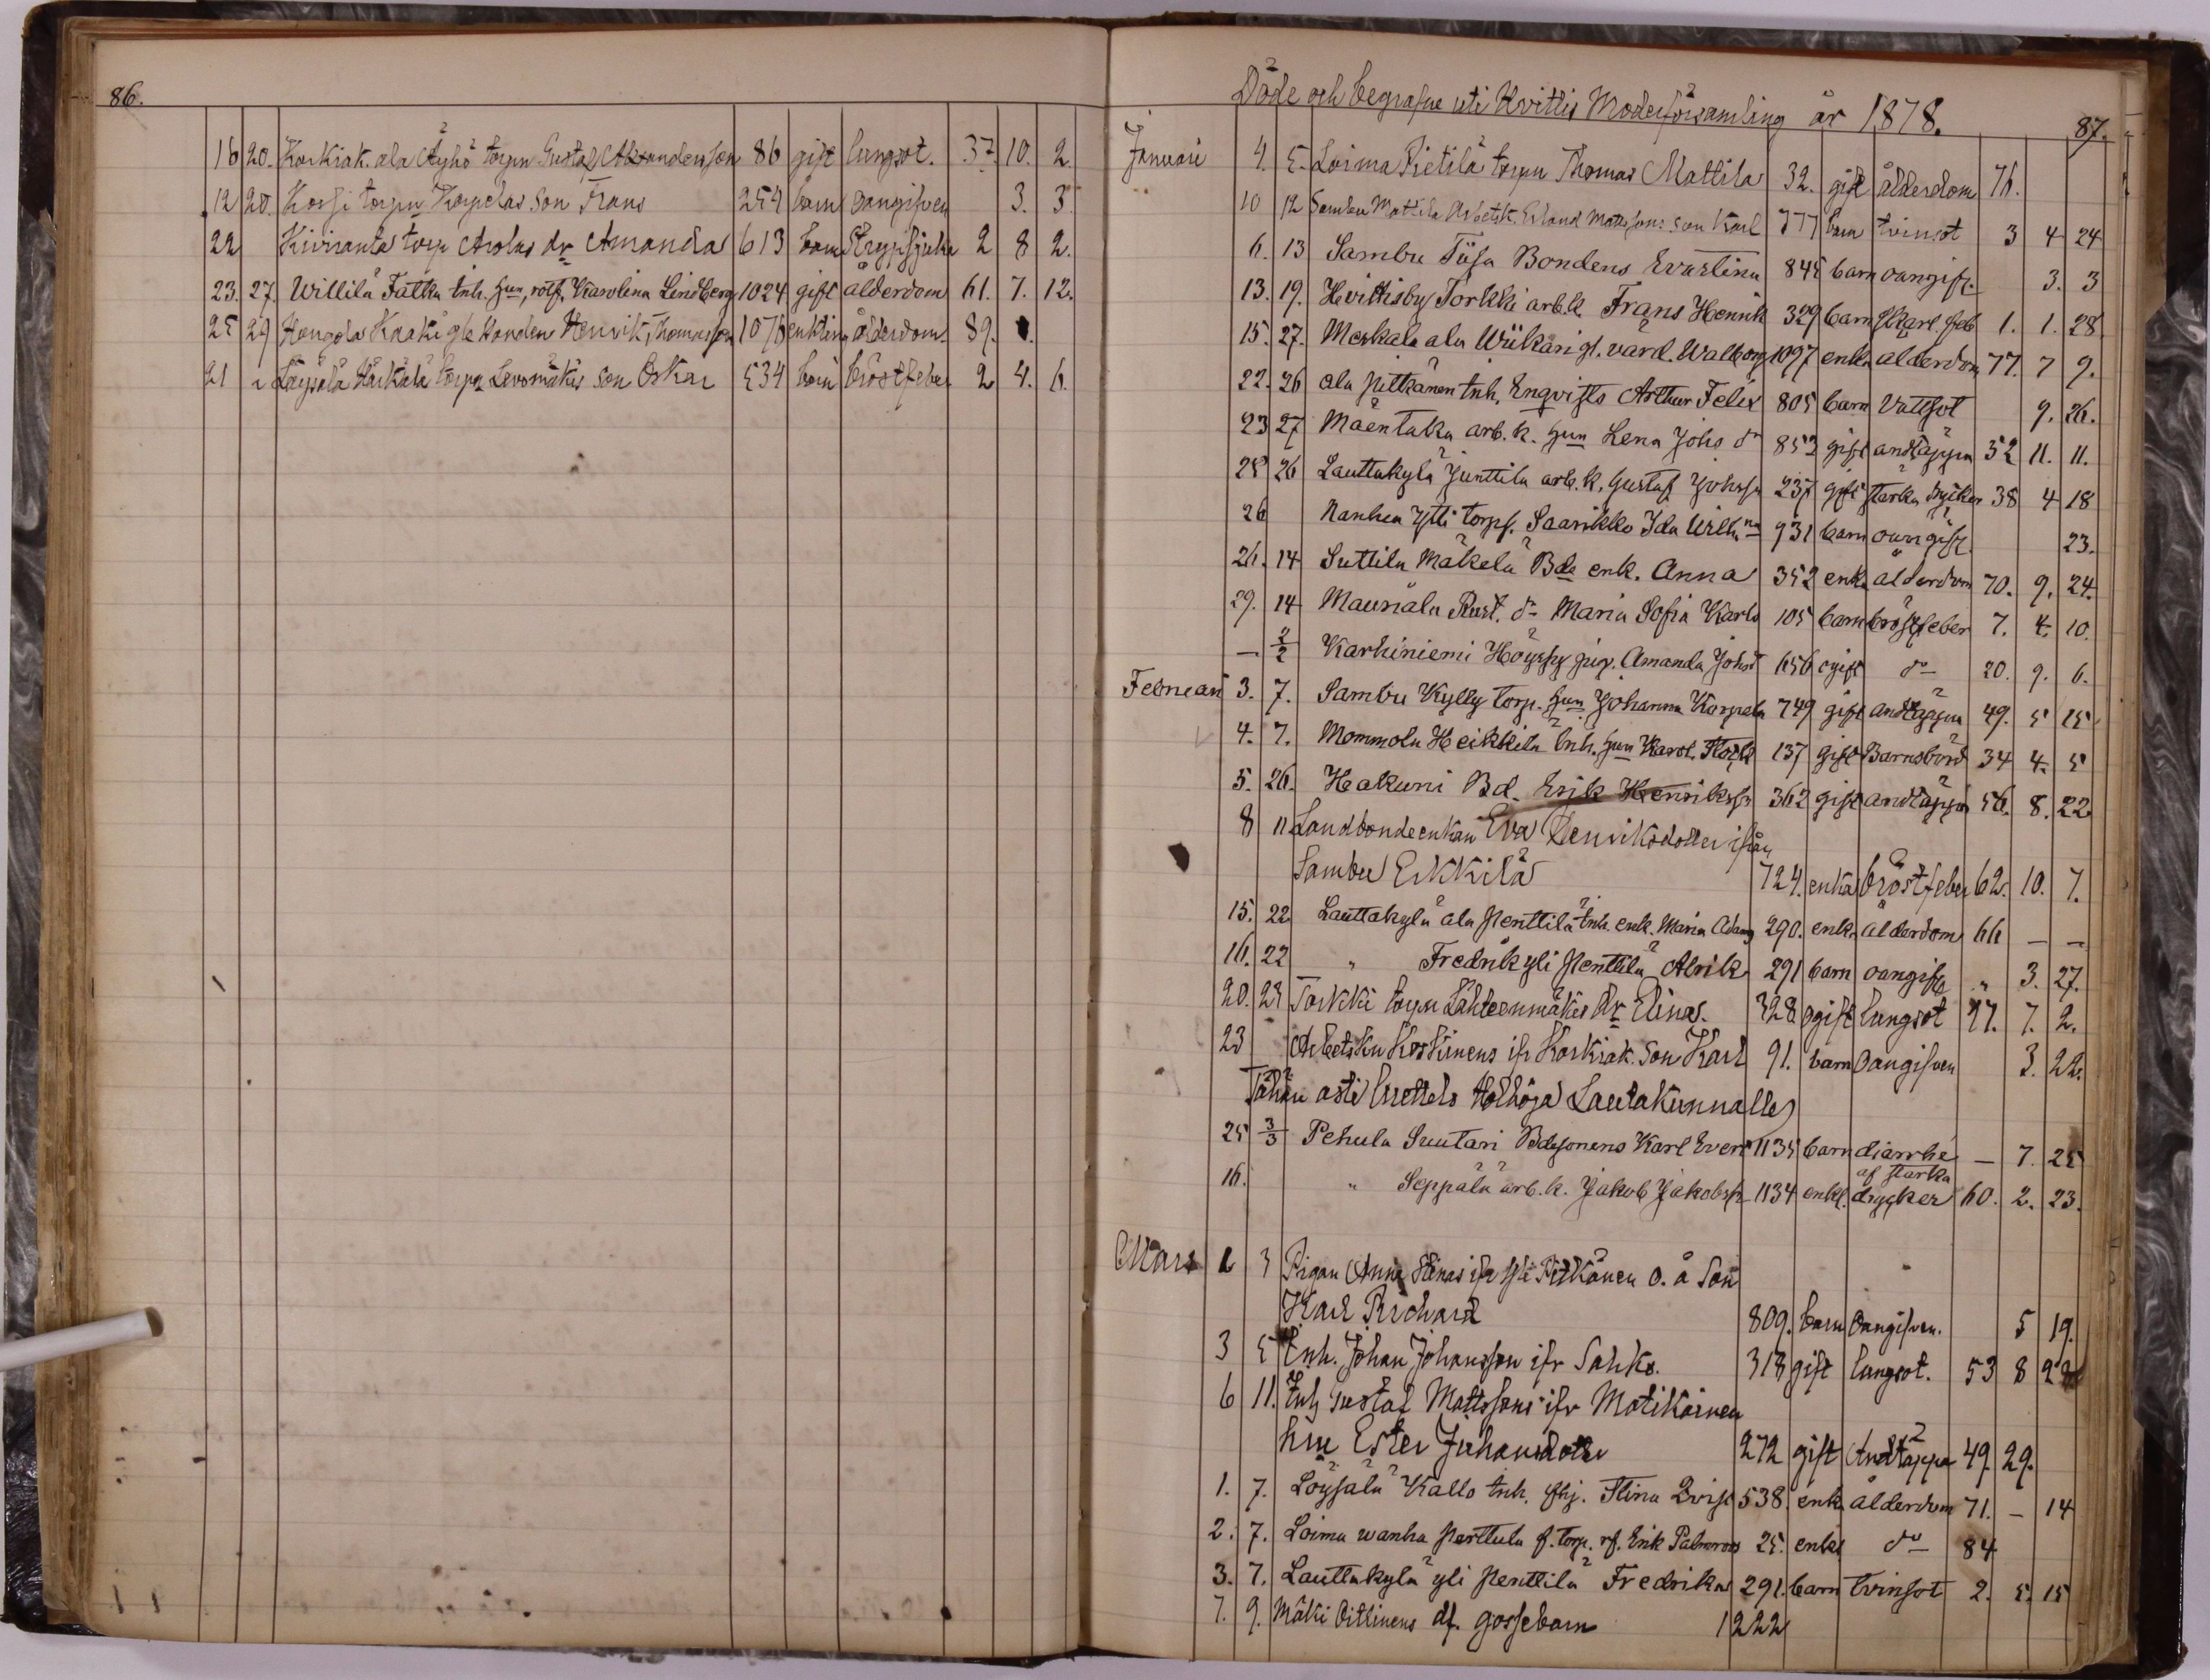 86.
16 20. Korkiak. ala Äyhö torpn Gustaf Alexandersson 86 gift lungsot. 37. 10. 2.
12 20. Korsi torpn Korpelas son Frans 254 barn oangifven 3. 3
22 Kiviranta torp Arolas dr Amanda 613 barn Strypsjuka 2 8 2.
23. 27. Willilä Fatka inh. hu, rotf. Karolina Lindberg 1024 gift ålderdom 61. 7. 12.
25 29 Hongola Kaaki gle Bonden Henrik Thomasson 1076 enkling ålderdom 89.
21 Löysälä Härkälä torpn Levomäkis son Oskar 534 barn bröstfeber 2 4. 6.
Döde och begrafne uti Hvittis Moderförsamling år 1878.
87.
Januari 4. 5. Loima Pietilä torpn Thomas Mattila 32. gift ålderdom 76.
10 12 Sambu Mattila Arbetsk. Erland Mattssons son Karl 777 barn tvinsot 3 4 24
6. 13 Sambu Tiisa Bondens Evastina 845 barn oangifv. 3. 3
13. 19. Hvittisby Torkki arb.k. Frans Henrik 329 barn Skarl. feb 1. 1. 28
15. 27. Meskala ala Wiikari gl. vard. Walborg 1097 enka ålderdom 77. 7 9.
22. 26 ala Pitkänen inh. Enqvists Arthur Felix 805 barn Vattsot 9. 26.
23 27 Mäentaka arb. k. hun Lena Johs dr 852 gift andtäppa 52 11. 11.
25 26 Lauttakylä Junttila arb. k. Gustaf Johssn 237 gift starka drycker 38 4 18
26 Nanhia Ylli torpf. Saarikko Ida Wilh.na 931 barn oangifv. 23.
26. 14 Suttila Mäkelä Bde enk. Anna 352 enka ålderdom 70. 9. 24.
29. 14 Mauriala Rust. dr Maria Sofia Karls 105 barn bröstfeber 7. 4. 10.
— 2/2 Karhiniemi Höyssy pig. Amanda Johsd 656 ogift do 20. 9. 6.
Februari 3. 7. Sambu Kylly torp. hun Johanna Korpela 749 gift andtäppa 49. 5 15
4. 7. Mommola Heikkilä inh. hun Karol. 137 gift Barnsbörd 34 4. 5
5. 26. Hakuni Bd. Erik Henriksson 362 gift andtäppa 56. 8. 22
8 11 Landbondeenkan Eva Henriksdotter ifrån
Sambu Erkkilä 724. enka bröstfeber 62. 10. 7.
15. 22 Lauttakylä ala Penttilä inh. enk. Maria Adams 290. enka ålderdom 66 — —
16. 22 " Fredrik yli Penttilä Alrik 291 barn oangifv " 3. 27.
20. 23 Torkki torpn Lähteenmäkis dr Elina. 328 ogift lungsot 17. 7. 2.
23 Arbetskn Koskinens ifr Korkiak. son Karl 91. barn oangifven 3. 22.
Tähän asti luettelo Holhoja Lautakunnalle
25 3/3 Pehula Suutari Bdesonens Karl Evert 1135 barn diarrhé — 7. 25
16. " Seppälä arb. k. Jakob Jakobsson 1134 enkl. af starka drycker 60. 2. 23.
Mars 2 3 Pigan Anna ifr Pitkänen o. ä son
Karl Richard 809. barn oangifven. 5 19.
3 5 Inh. Johan Johansson ifr Sahko. 318 gift lungsot. 53 8
6 11. Inh Gustaf Mattssons ifr Matikainen
hu Ester Juhansdotter 272 gift Andtäppa 49. 29.
1. 7. Löysälä Kallo inh. fhj. Stina Qvist 538. enka ålderdom 71. — 14
2. 7. Loima wanha Perttula f. torp. rf. Erik Palmroos 25. enkl do 84
3. 7. Lauttakylä yli Penttilä Fredrika 291. barn tvinsot 2. 5. 15
7. 9. Mäki Oitlinens df. gossebarn 1222